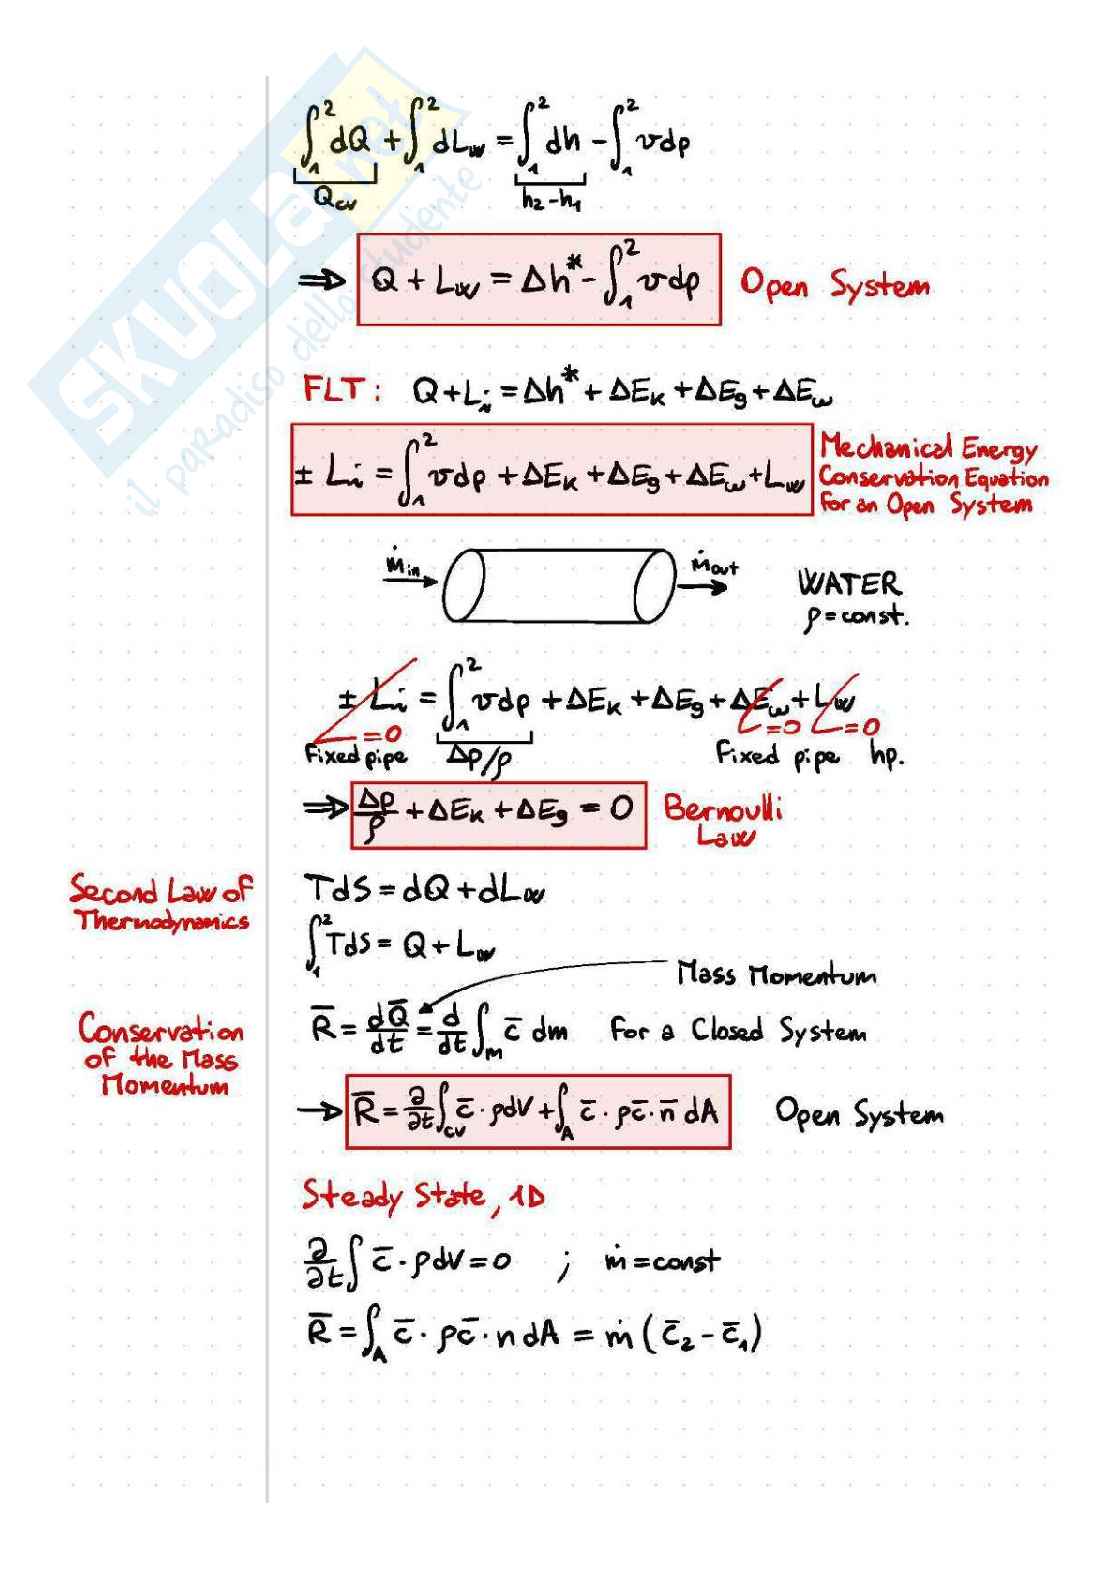 ∫₁² dQ + ∫₁² dL_w = ∫₁² dh - ∫₁² vdp
Q_cv h₂-h₁
⇒ Q + L_w = Δh* - ∫₁² vdp Open System
FLT: Q + L_i = Δh* + ΔE_k + ΔE_g + ΔE_ω
± L_i = ∫₁² vdp + ΔE_k + ΔE_g + ΔE_ω + L_w
Mechanical Energy
Conservation Equation
for an Open System
ṁ_in ṁ_out
WATER
ρ = const.
± L_i = ∫₁² vdp + ΔE_k + ΔE_g + ΔE_ω + L_w
=0 =0 =0
Fixed pipe Δp/ρ Fixed pipe hp.
⇒ Δp/ρ + ΔE_k + ΔE_g = 0 Bernoulli
Law
Second Law of
Thermodynamics
TdS = dQ + dL_w
∫₁² TdS = Q + L_w
Mass Momentum
Conservation
of the Mass
Momentum
R̄ = dQ̄/dt = d/dt ∫_m c̄ dm for a Closed System
→ R̄ = ∂/∂t ∫_cv c̄ · ρdV + ∫_A c̄ · ρc̄ · n̄ dA Open System
Steady State, 1D
∂/∂t ∫ c̄ · ρdV = 0 ; ṁ = const
R̄ = ∫_A c̄ · ρc̄ · n dA = ṁ (c̄₂ - c̄₁)
SKUOLA.net
il paradiso dello studente